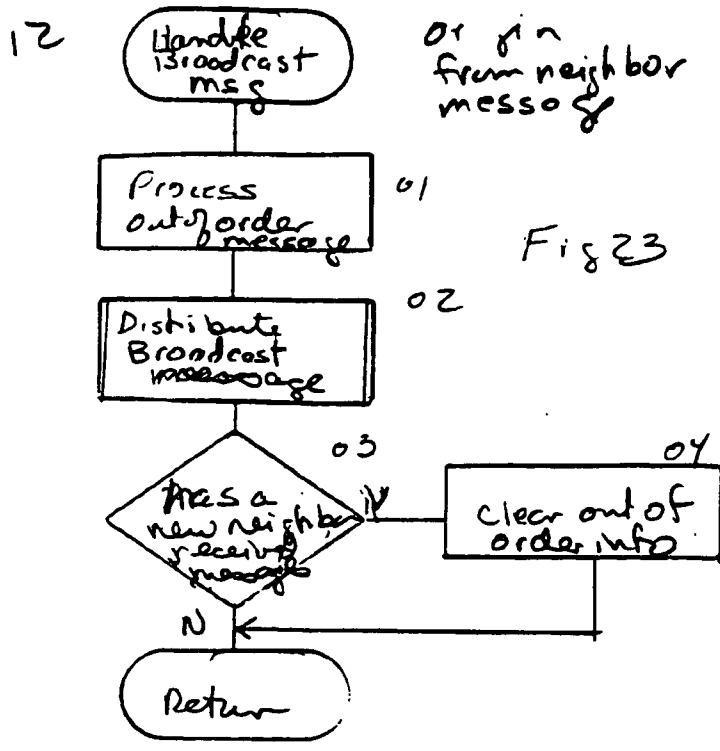 12
Handle
Broadcast
msg
Origin
from neighbor
message
Process
out of order
message
01
Fig 23
Distribute
Broadcast
message
02
03
Has a
new neighbor
received
message
04
Clear out of
order info
N
Return